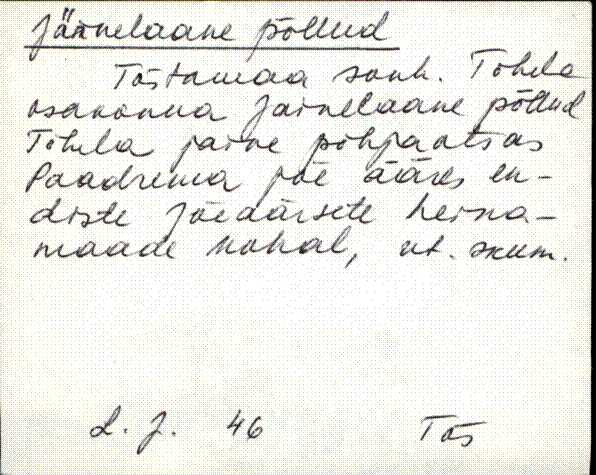 Järvelaane põllud
Tõstamaa sovh. Tõhela
osakonna Järvelaane põllud
Tõhela järve põhjaotsas
Paadrema jõe ääres en-
diste jõeäärsete heina-
maade kohal, vt. skeem.
L. J. 46 Tõs